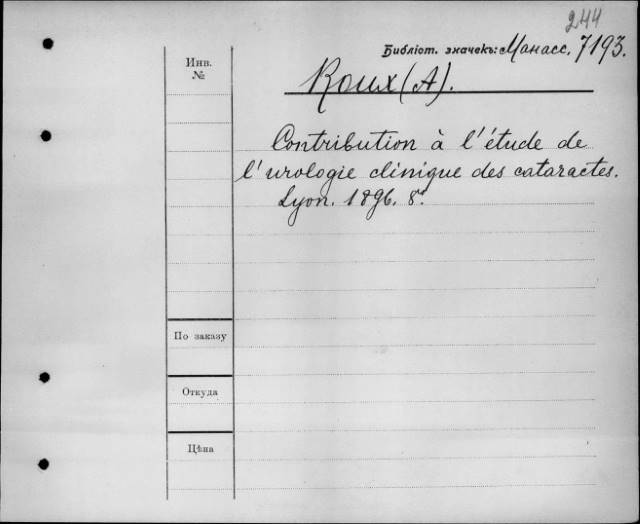 244
Библіот. значекъ: Манасс. 7193.
Инв.
№
Roux (A).
Contribution à l'étude de
l'urologie clinique des cataractes.
Lyon. 1896. 8°.
По заказу
Откуда
Цѣна